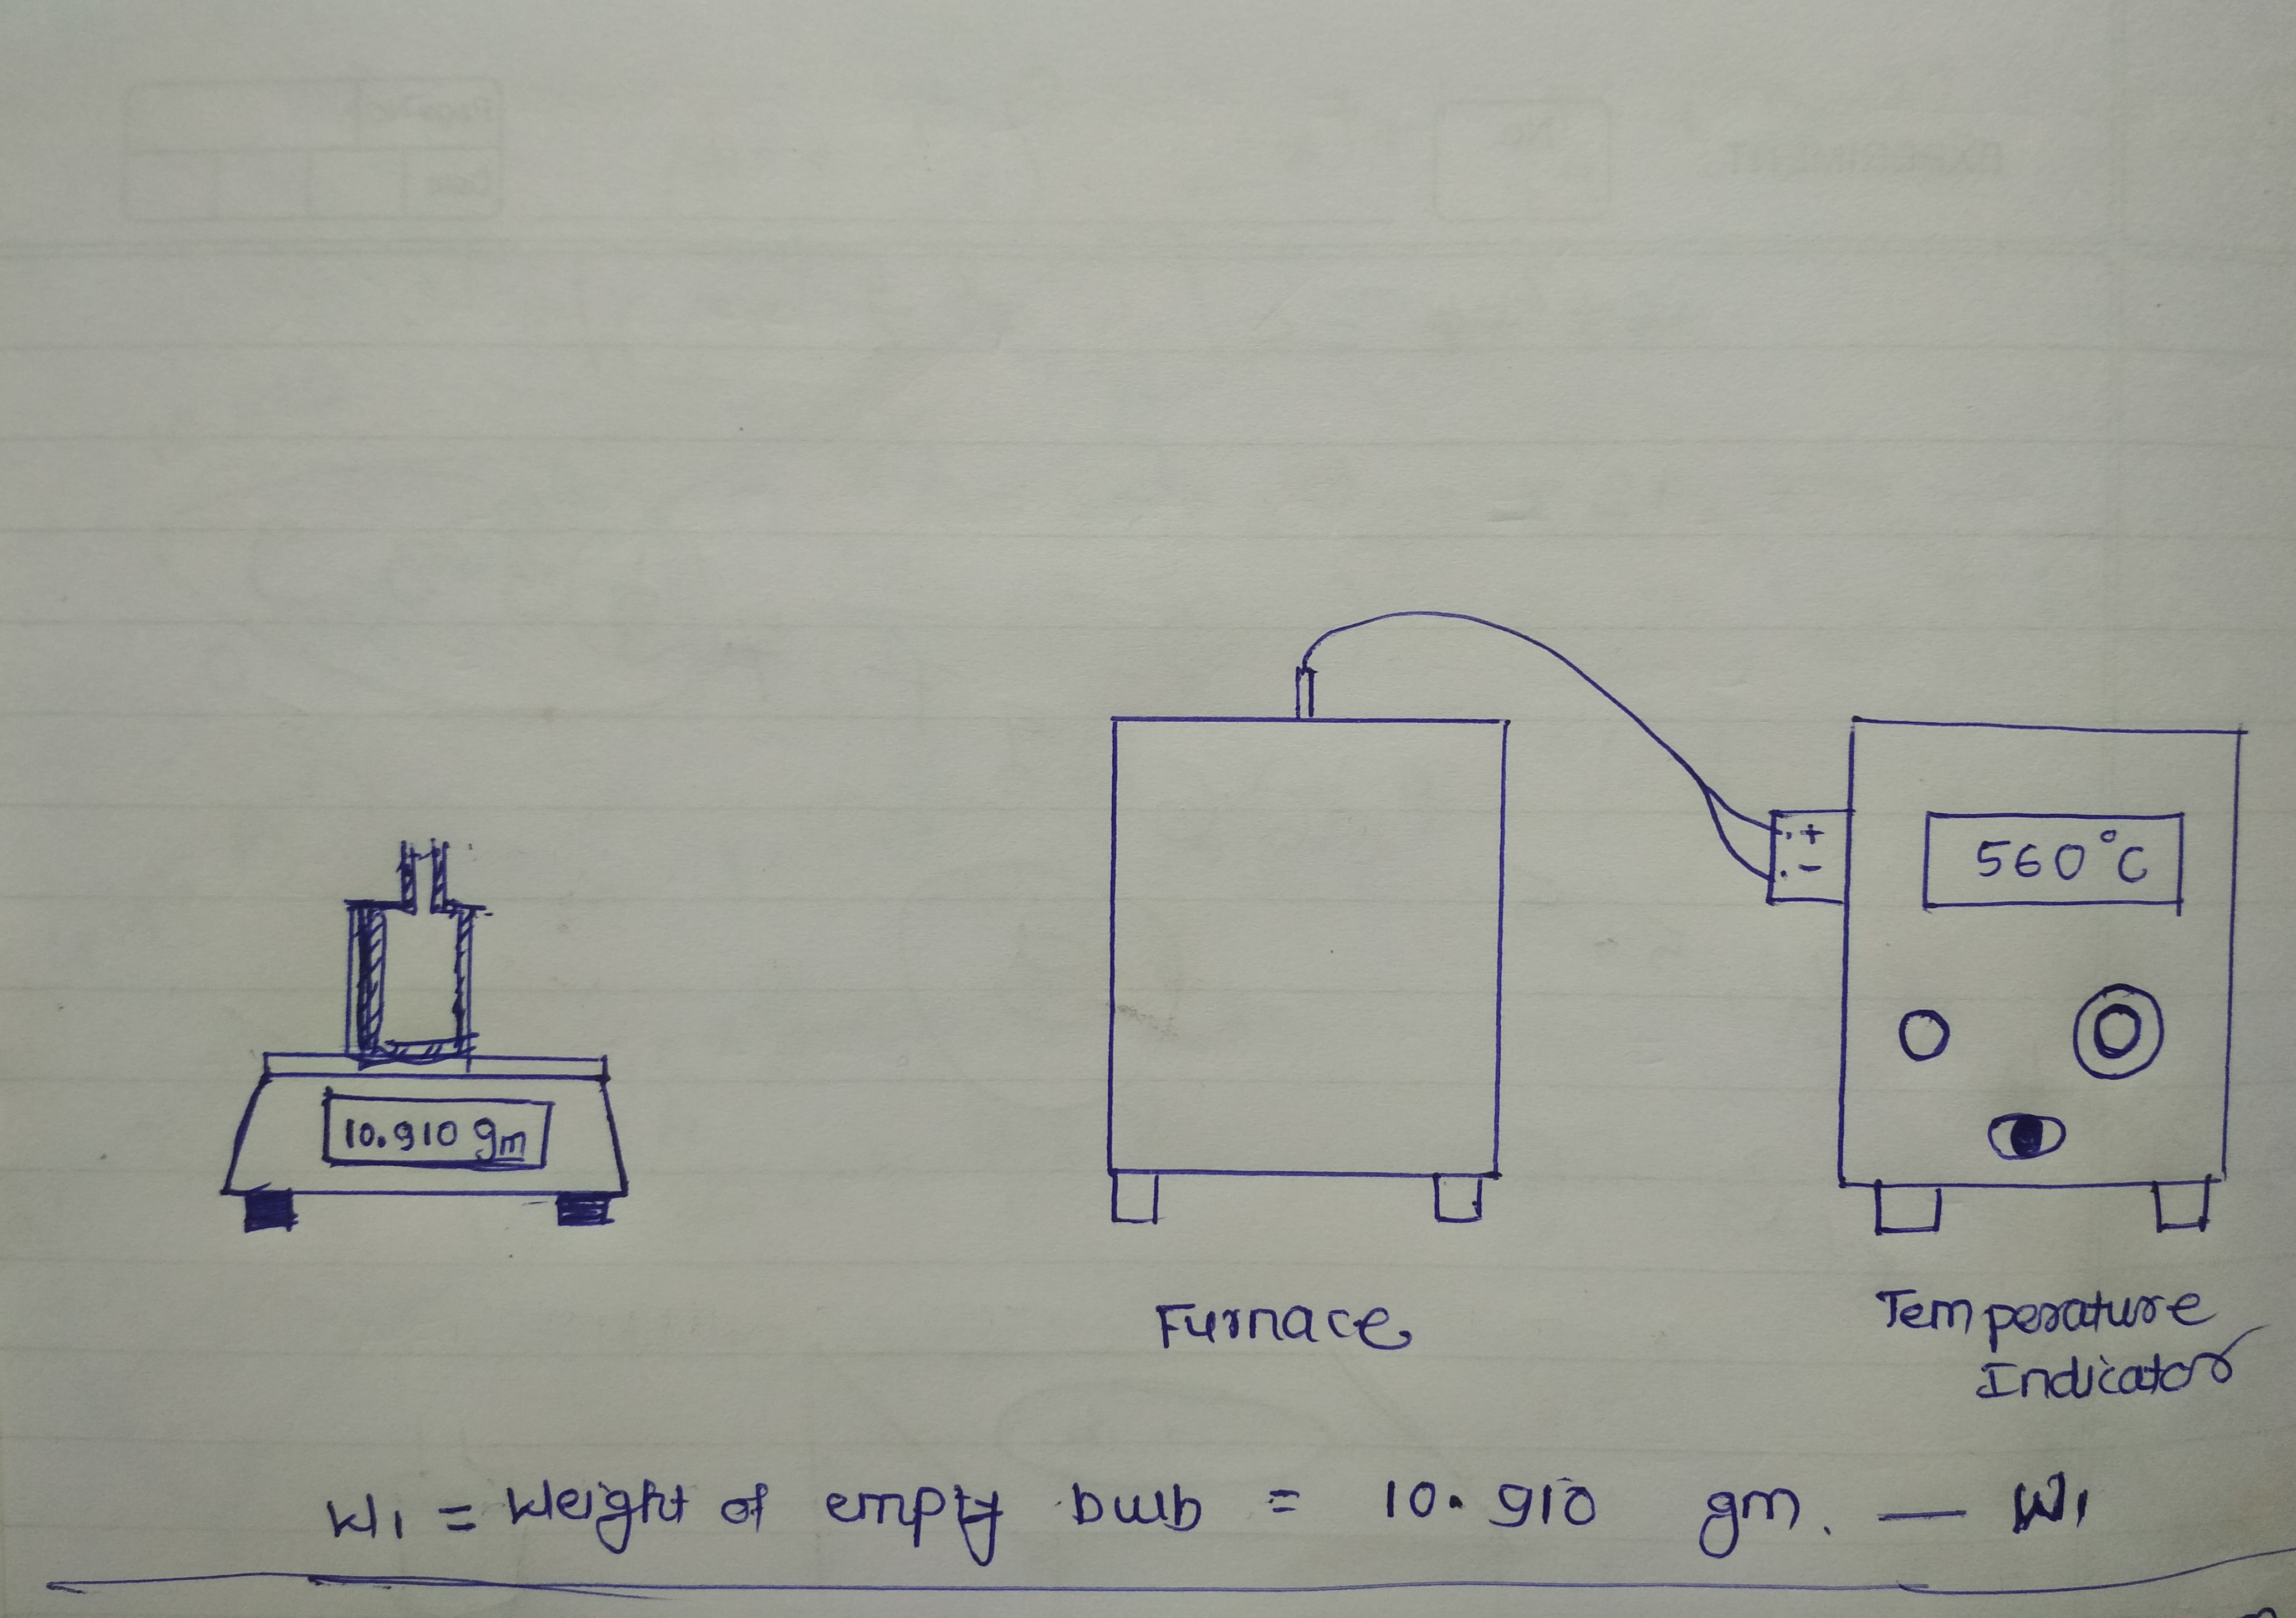 +
-
560°C
10.910 gm
Furnace
Temperature
Indicator
W1 = Weight of empty bulb = 10.910 gm. — W1